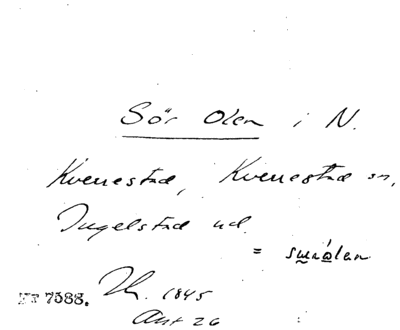 Sör Olen i N.
Kverrestad, Kverrestad sn,
Ingelstad hd.
= smɑ̊ólen
NT 7588. Th. 1845
Ant 26